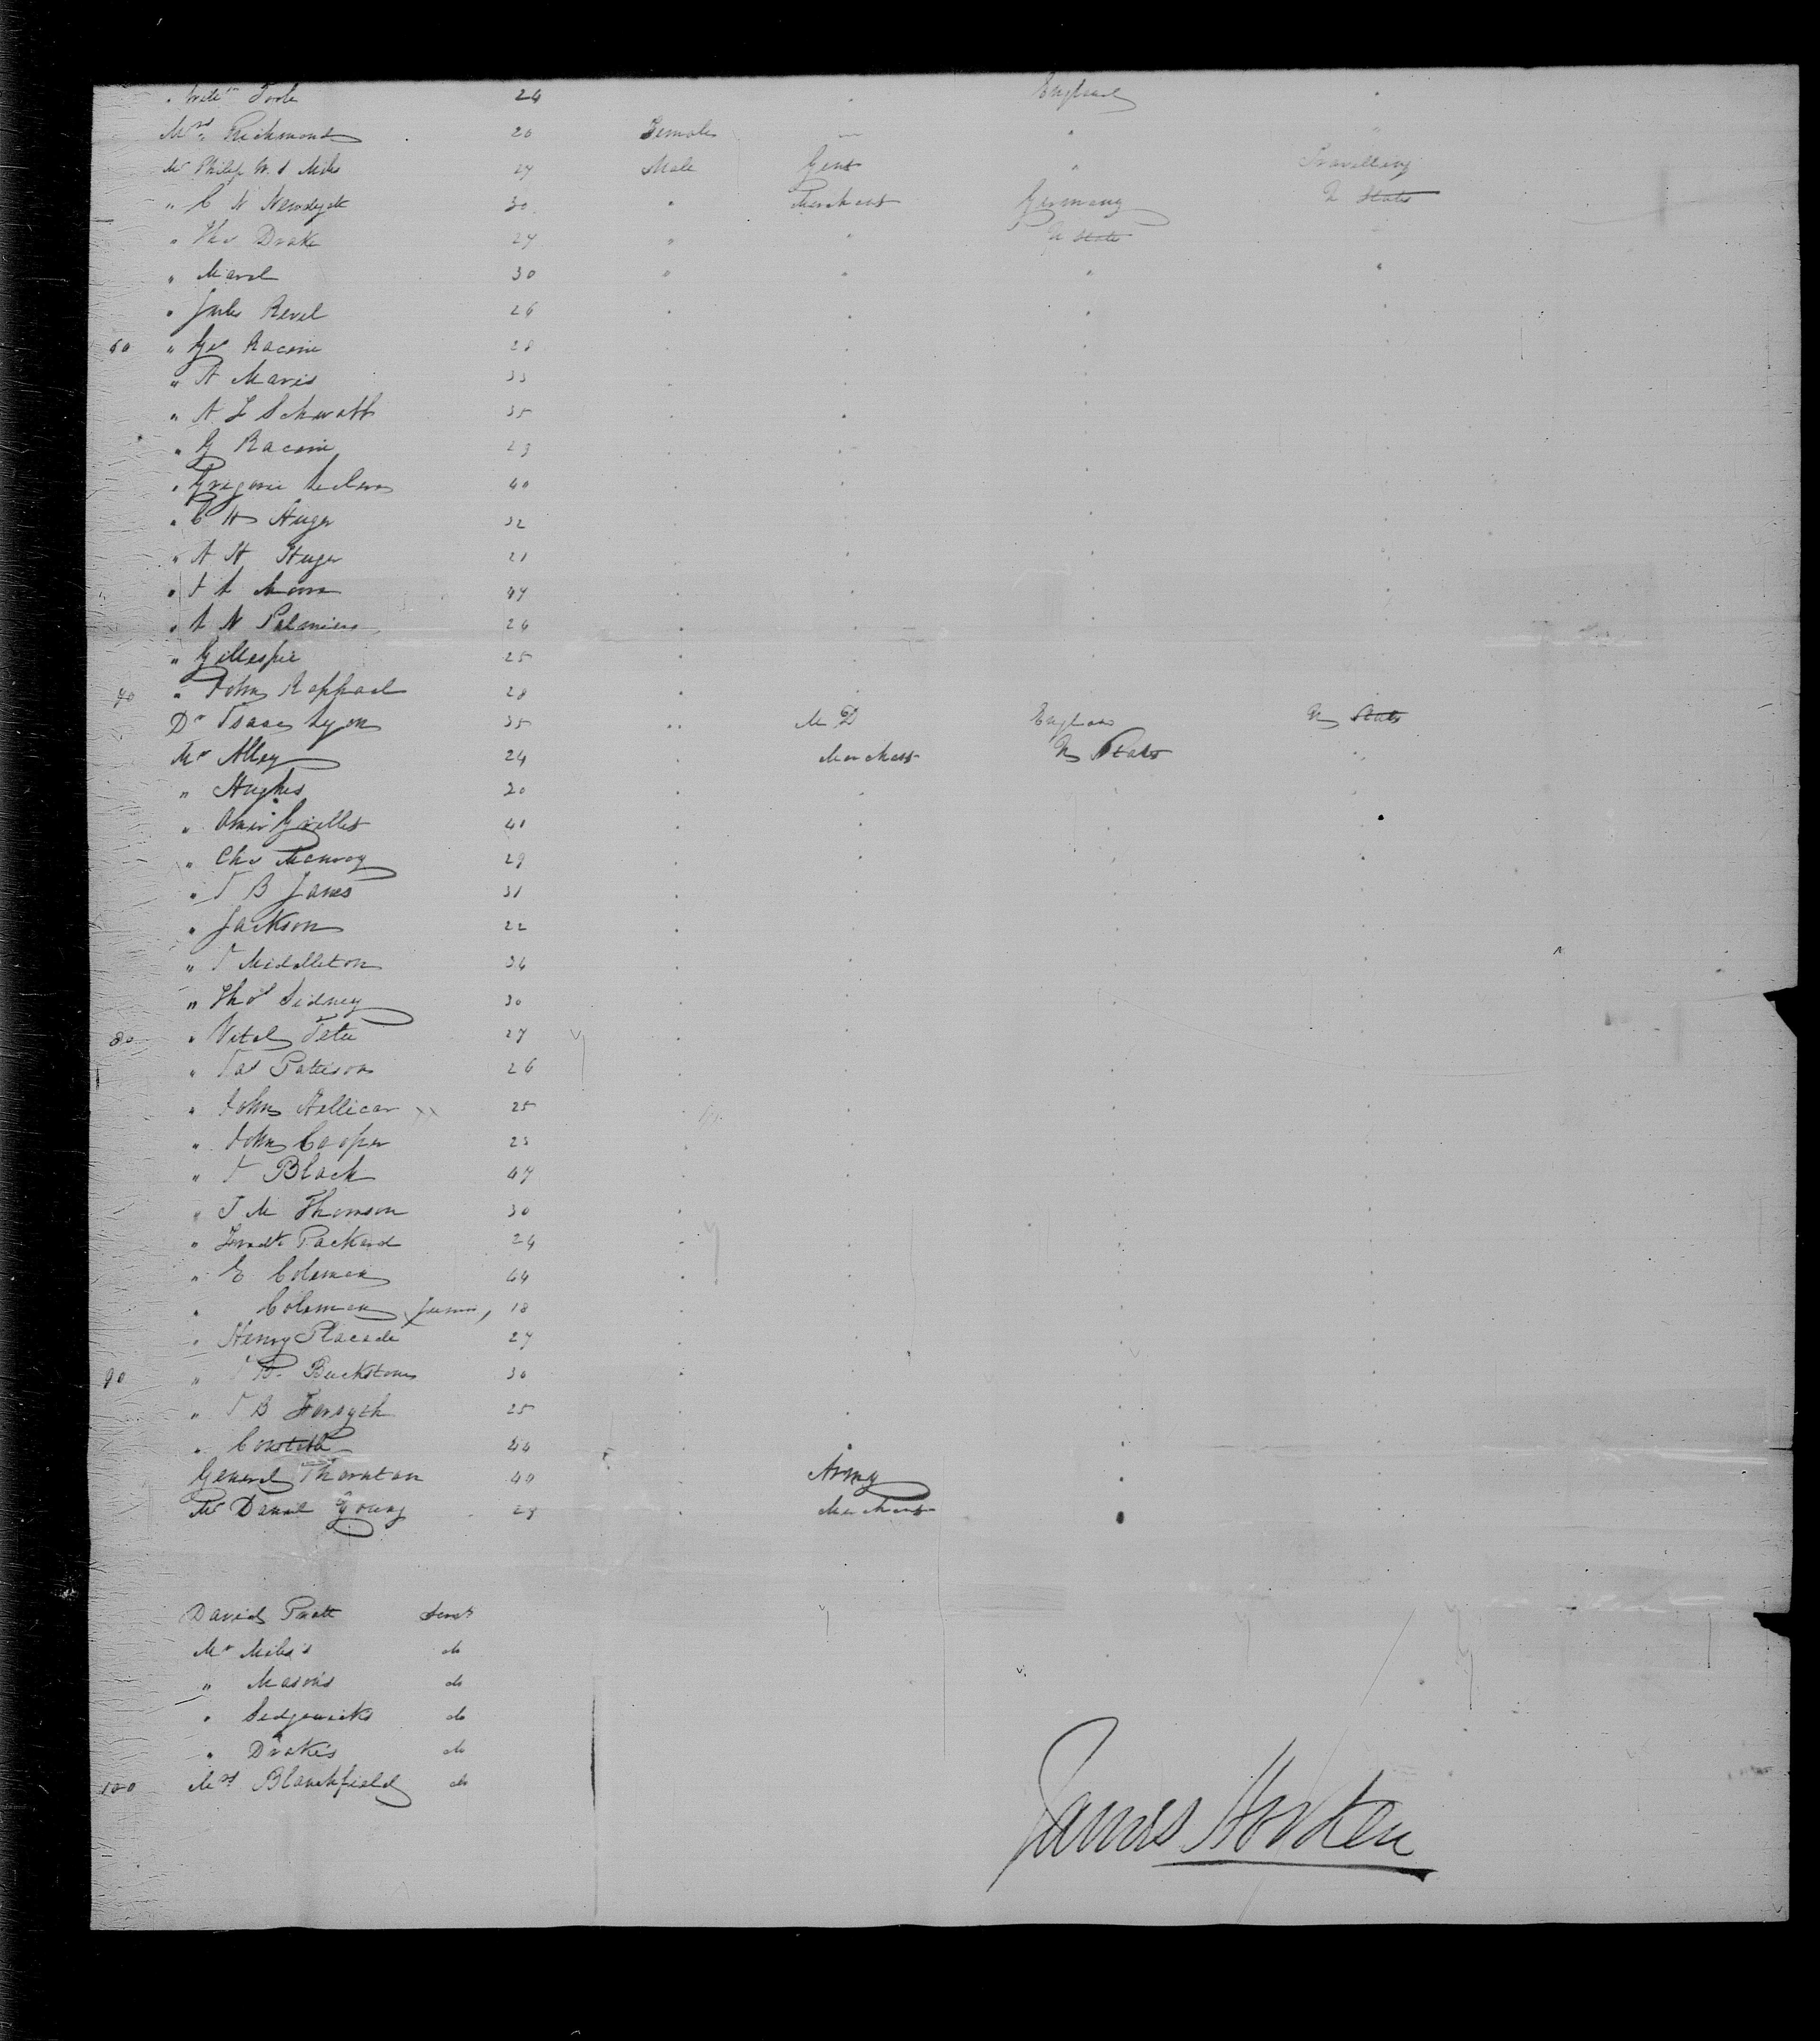 " Will^m Toole 24 " England "
M^rs Richmond 20 Female — " "
M^r Philip W. S Miles 27 Male Gent " Travelling
" C N Newdyck 30 " Merchant Germany U States
" Tho^s Drake 27 " " U States
" Marel 30 " " " "
" Jules Revel 26 " " " "
60 " Geo Racine 28 " " " "
" A Maris 33 " " "
" A L Schwabb 35 " " "
" G Racine 23 " "
" Gregorie 40 " " " "
" C H Huger 32 " "
" A H Huger 21 " " "
" 47 " " "
" A N Palmieri 26 " " "
" Gillespie 25 " " "
70 " John Raphael 28 " "
D^r Isaac Lyon 35 " M D England U States
M^r Alley 24 " Merchant U States "
" Hughes 20 " " " "
" Omer Gillet 40 " " " "
" Cha^s 29 " " " "
" J B James 31 " " " "
" Jackson 22 " " " "
" J Middleton 34 " " " "
" Tho^s Sidney 30 " " " "
80 " Vital Tetu 27 " " " "
" Ja^s Patteson 26 " " " "
" John Hellicar xx 25 " " " "
" John Cooper 23 " " " "
" J Black 47 " " " "
" J M Thomson 30 " " " "
" Packard 24 " " " "
" E Coleman 44 " " " "
" Coleman Junr, 18 " " " "
" Henry Placide 27 " " "
90 " J B. Buckstone 30 " "
" J B Forsyth 25 " " " "
" 44 " " " "
General Thornton 40 " Army " "
M^r Daniel Young 23 " Merchant " "
David Pratt Servt
M^r Miles's do
" Mason's do
" Sedgewicks do
" Drake's do
100 M^rs Blanchfield do
James Hosken